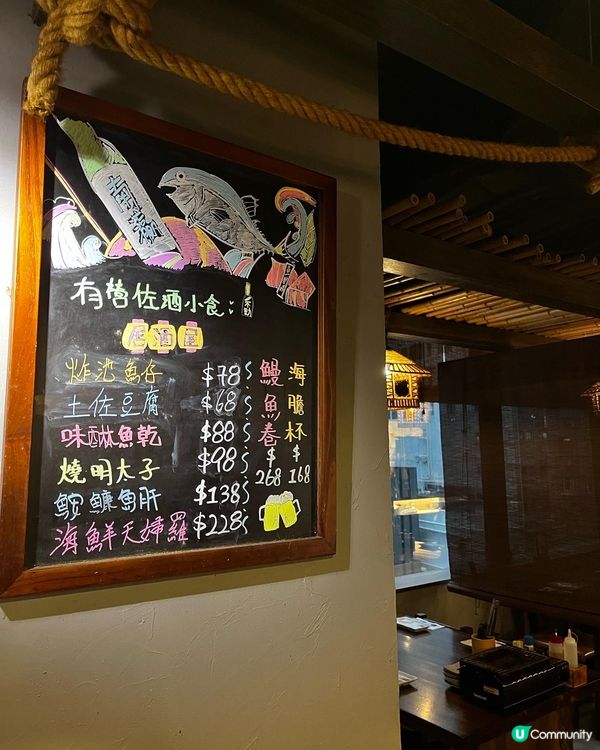 有營佐酒小食：
居酒屋
炸池魚仔 $78
土佐豆腐 $68
味醂魚乾 $88
燒明太子 $98
鮟鱇魚肝 $138
海鮮天婦羅 $228
鰻魚卷 $268
海膽杯 $168
U Community